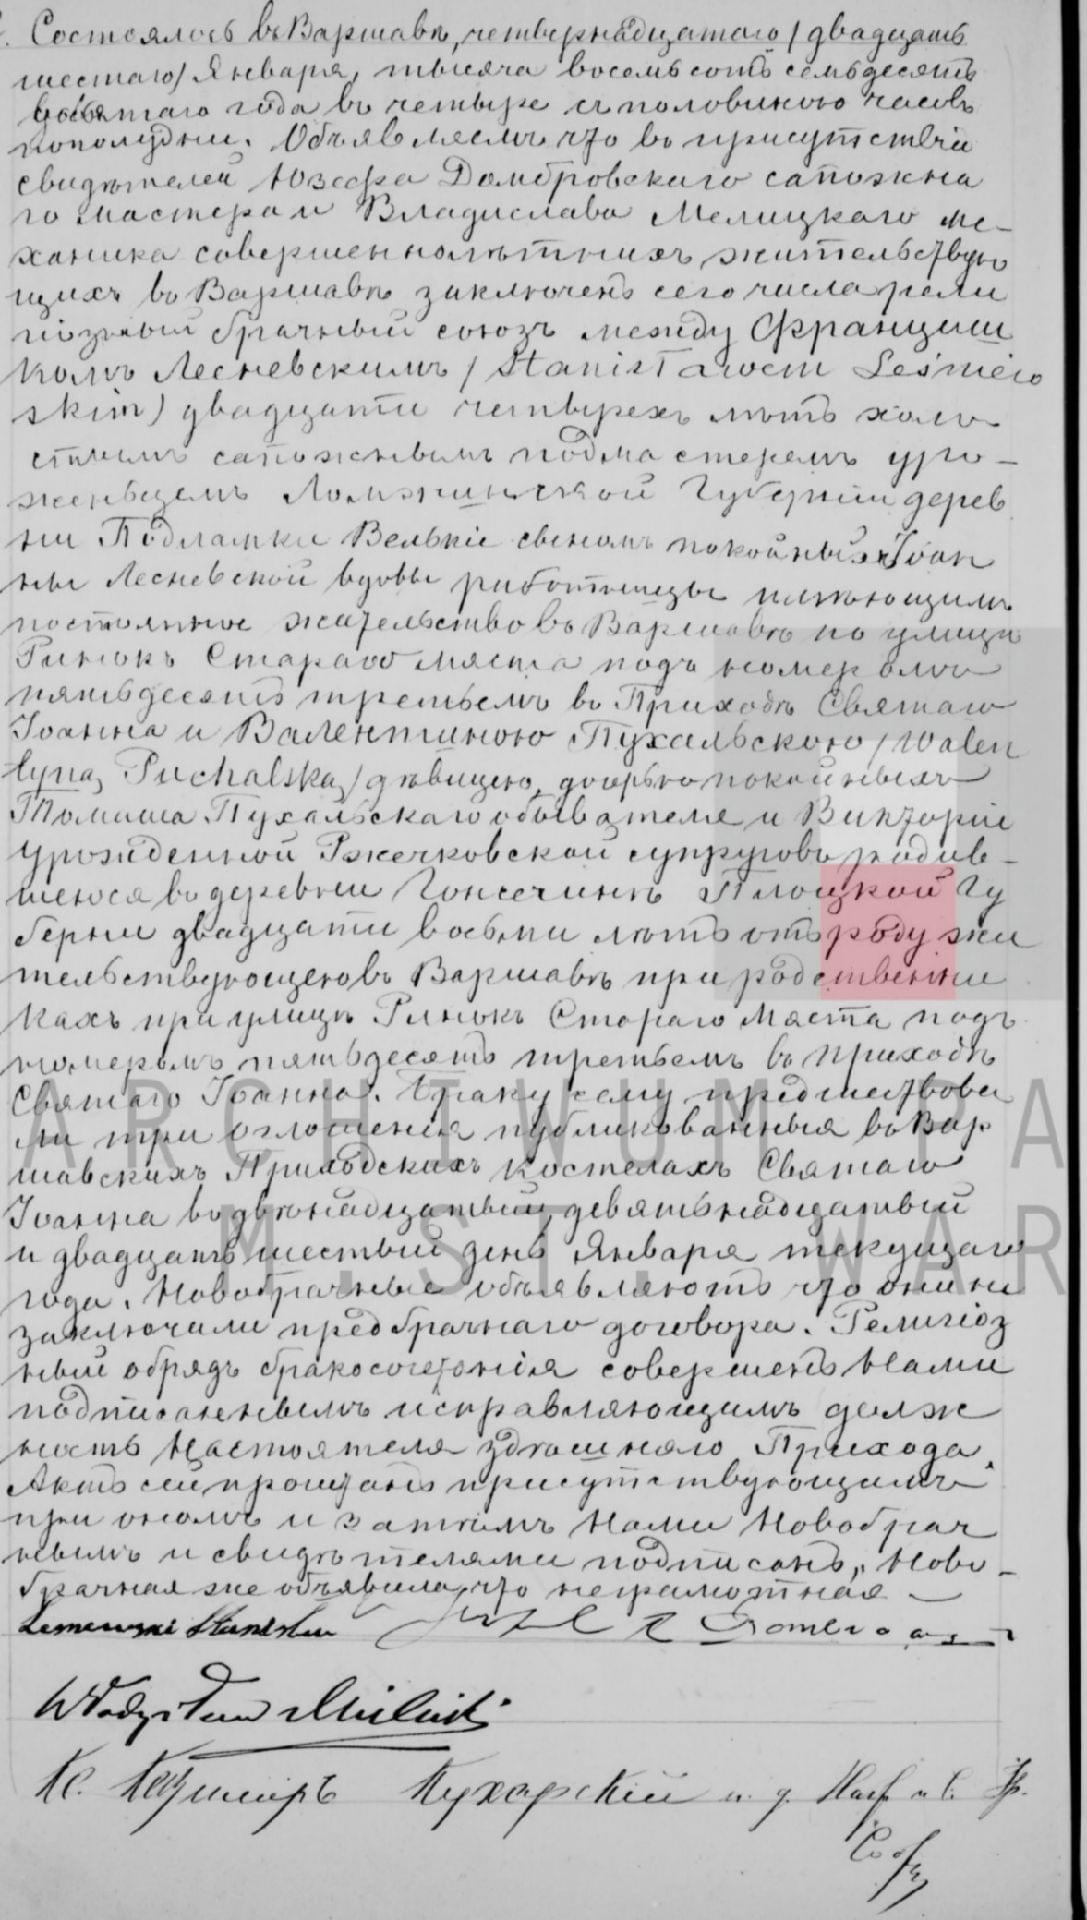 Состоялось въ Варшавѣ, четвернадцатаго / двадцать
шестаго / Января, тысяча восемьсотъ семьдесятъ
девятаго года въ четыре съ половиною часовъ
пополудни. Объявляемъ что въ присутствіи
свидѣтелей Юзефа Домбровскаго сапожна
го мастера и Владислава Мелицкаго ме-
ханика совершеннолѣтнихъ, жительствую
щихъ въ Варшавѣ заключенъ сего числа рели
гіозный брачный союзъ между Францишк
комъ Лесневскимъ / Stanisławem Leśniew
skim) двадцати четырехъ лѣтъ холо
стымъ сапожнымъ подмастеремъ уро-
женьцемъ Ломжиньской Губерніи дерев
ни Подламки Велькіе сыномъ покойный Іоан
ны Лесневской вдовы работницы имѣющимъ
постоянное жательство въ Варшавѣ по улицѣ
Рынокъ Стараго Мяста подъ номеромъ
пятьдесятъ третьемъ въ Приходѣ Святаго
Іоанна и Валентиною Пухальскою / Walen
tyną Puchalską / дѣвицею, дочерью покойныхъ
Томаша Пухальскаго обывателя и Викторіи
урожденной Ржечковской супруговъ родив-
шеюся въ деревни Гонсечинѣ Плоцкой Гу
берни двадцати восьми лѣтъ отъ роду жи
тельствующею въ Варшавѣ при родственни
кахъ при улицѣ Рынокъ Стараго Мяста подъ
номеромъ пятьдесятъ третьемъ въ приходѣ
Святаго Іоанна. Браку сему предшествова
ли три оглошенія публикованныя въ Вар
шавскихъ Приходскихъ костелахъ Святаго
Іоанна въ двѣнадцатый, девятьнадцатый
и двадцать шестый день Января текущаго
года. Новобрачные объявляютъ что они не
заключали предбрачнаго договора. Религіоз
ный обрядъ бракосочетанія совершенъ Нами
подписаннымъ исправляющимъ долж
ность Настоятеля здѣшняго Прихода.
Актъ сей прочитанъ присутствующимъ
при ономъ и затѣмъ Нами Новобрач
нымъ и свидѣтелями подписанъ, Ново-
брачная же объявила, что неграмотная
Lesniewski Stanisław
Władysław Milicki
Кс. Казимиръ Кухарскій и. д. Наст.
ARCHIWUM PA
M. ST. WAR